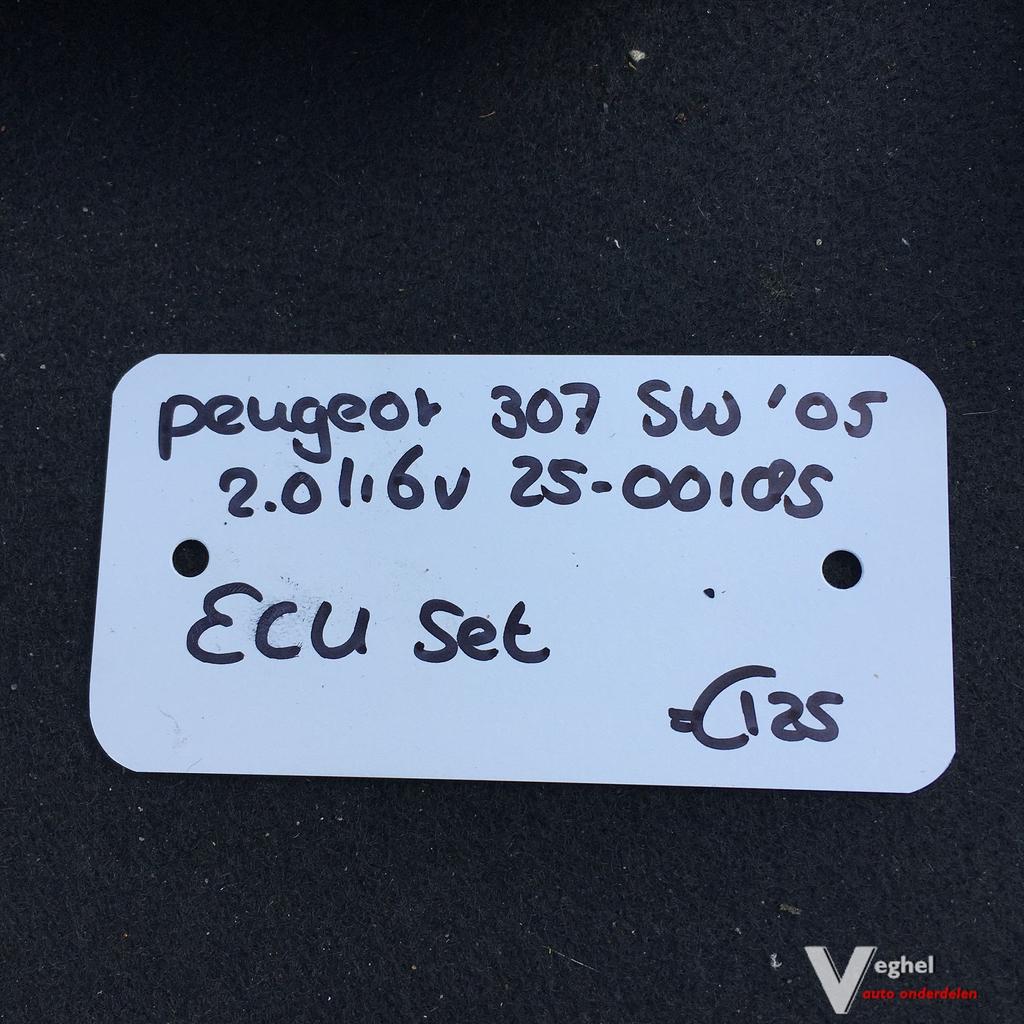 peugeot 307 SW '05
2.0 1.6v 25-00185
ECU Set
€125
Veghel
auto onderdelen